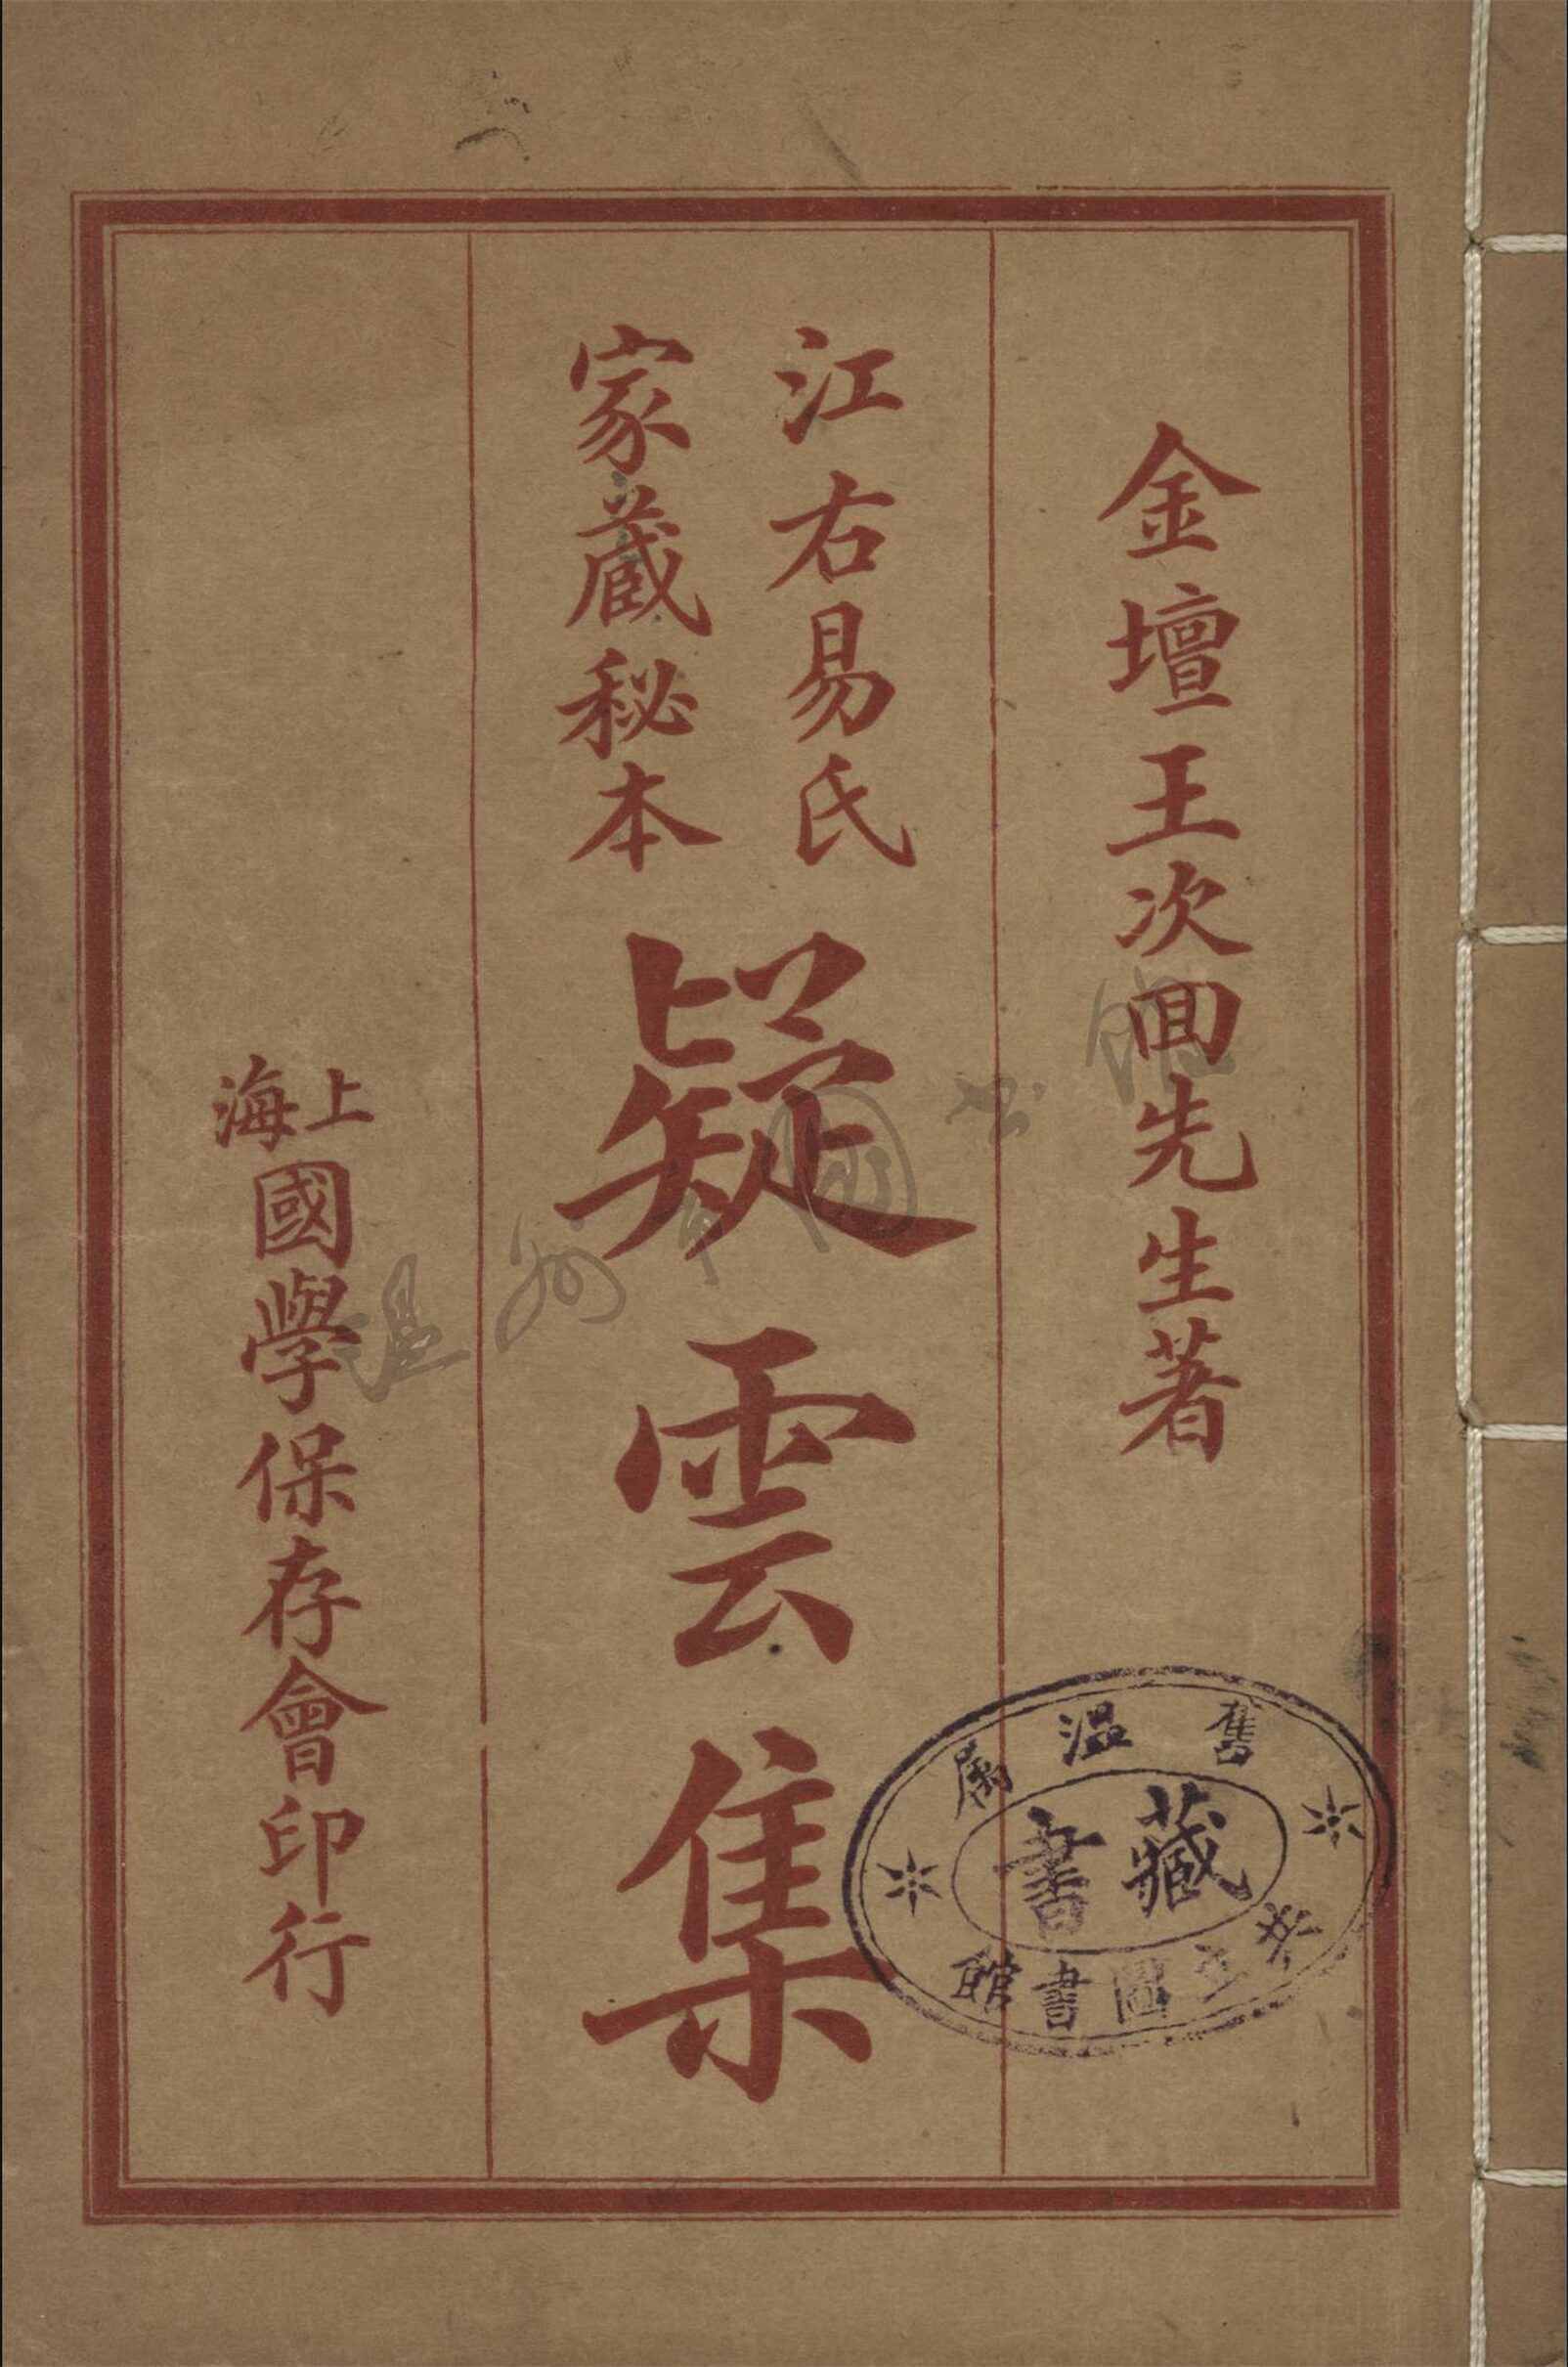 金壇王次回先生著
江右易氏
家藏秘本
疑雲集
上海
國學保存會印行
舊溫屬
藏書
公立圖書館
温州市图书馆